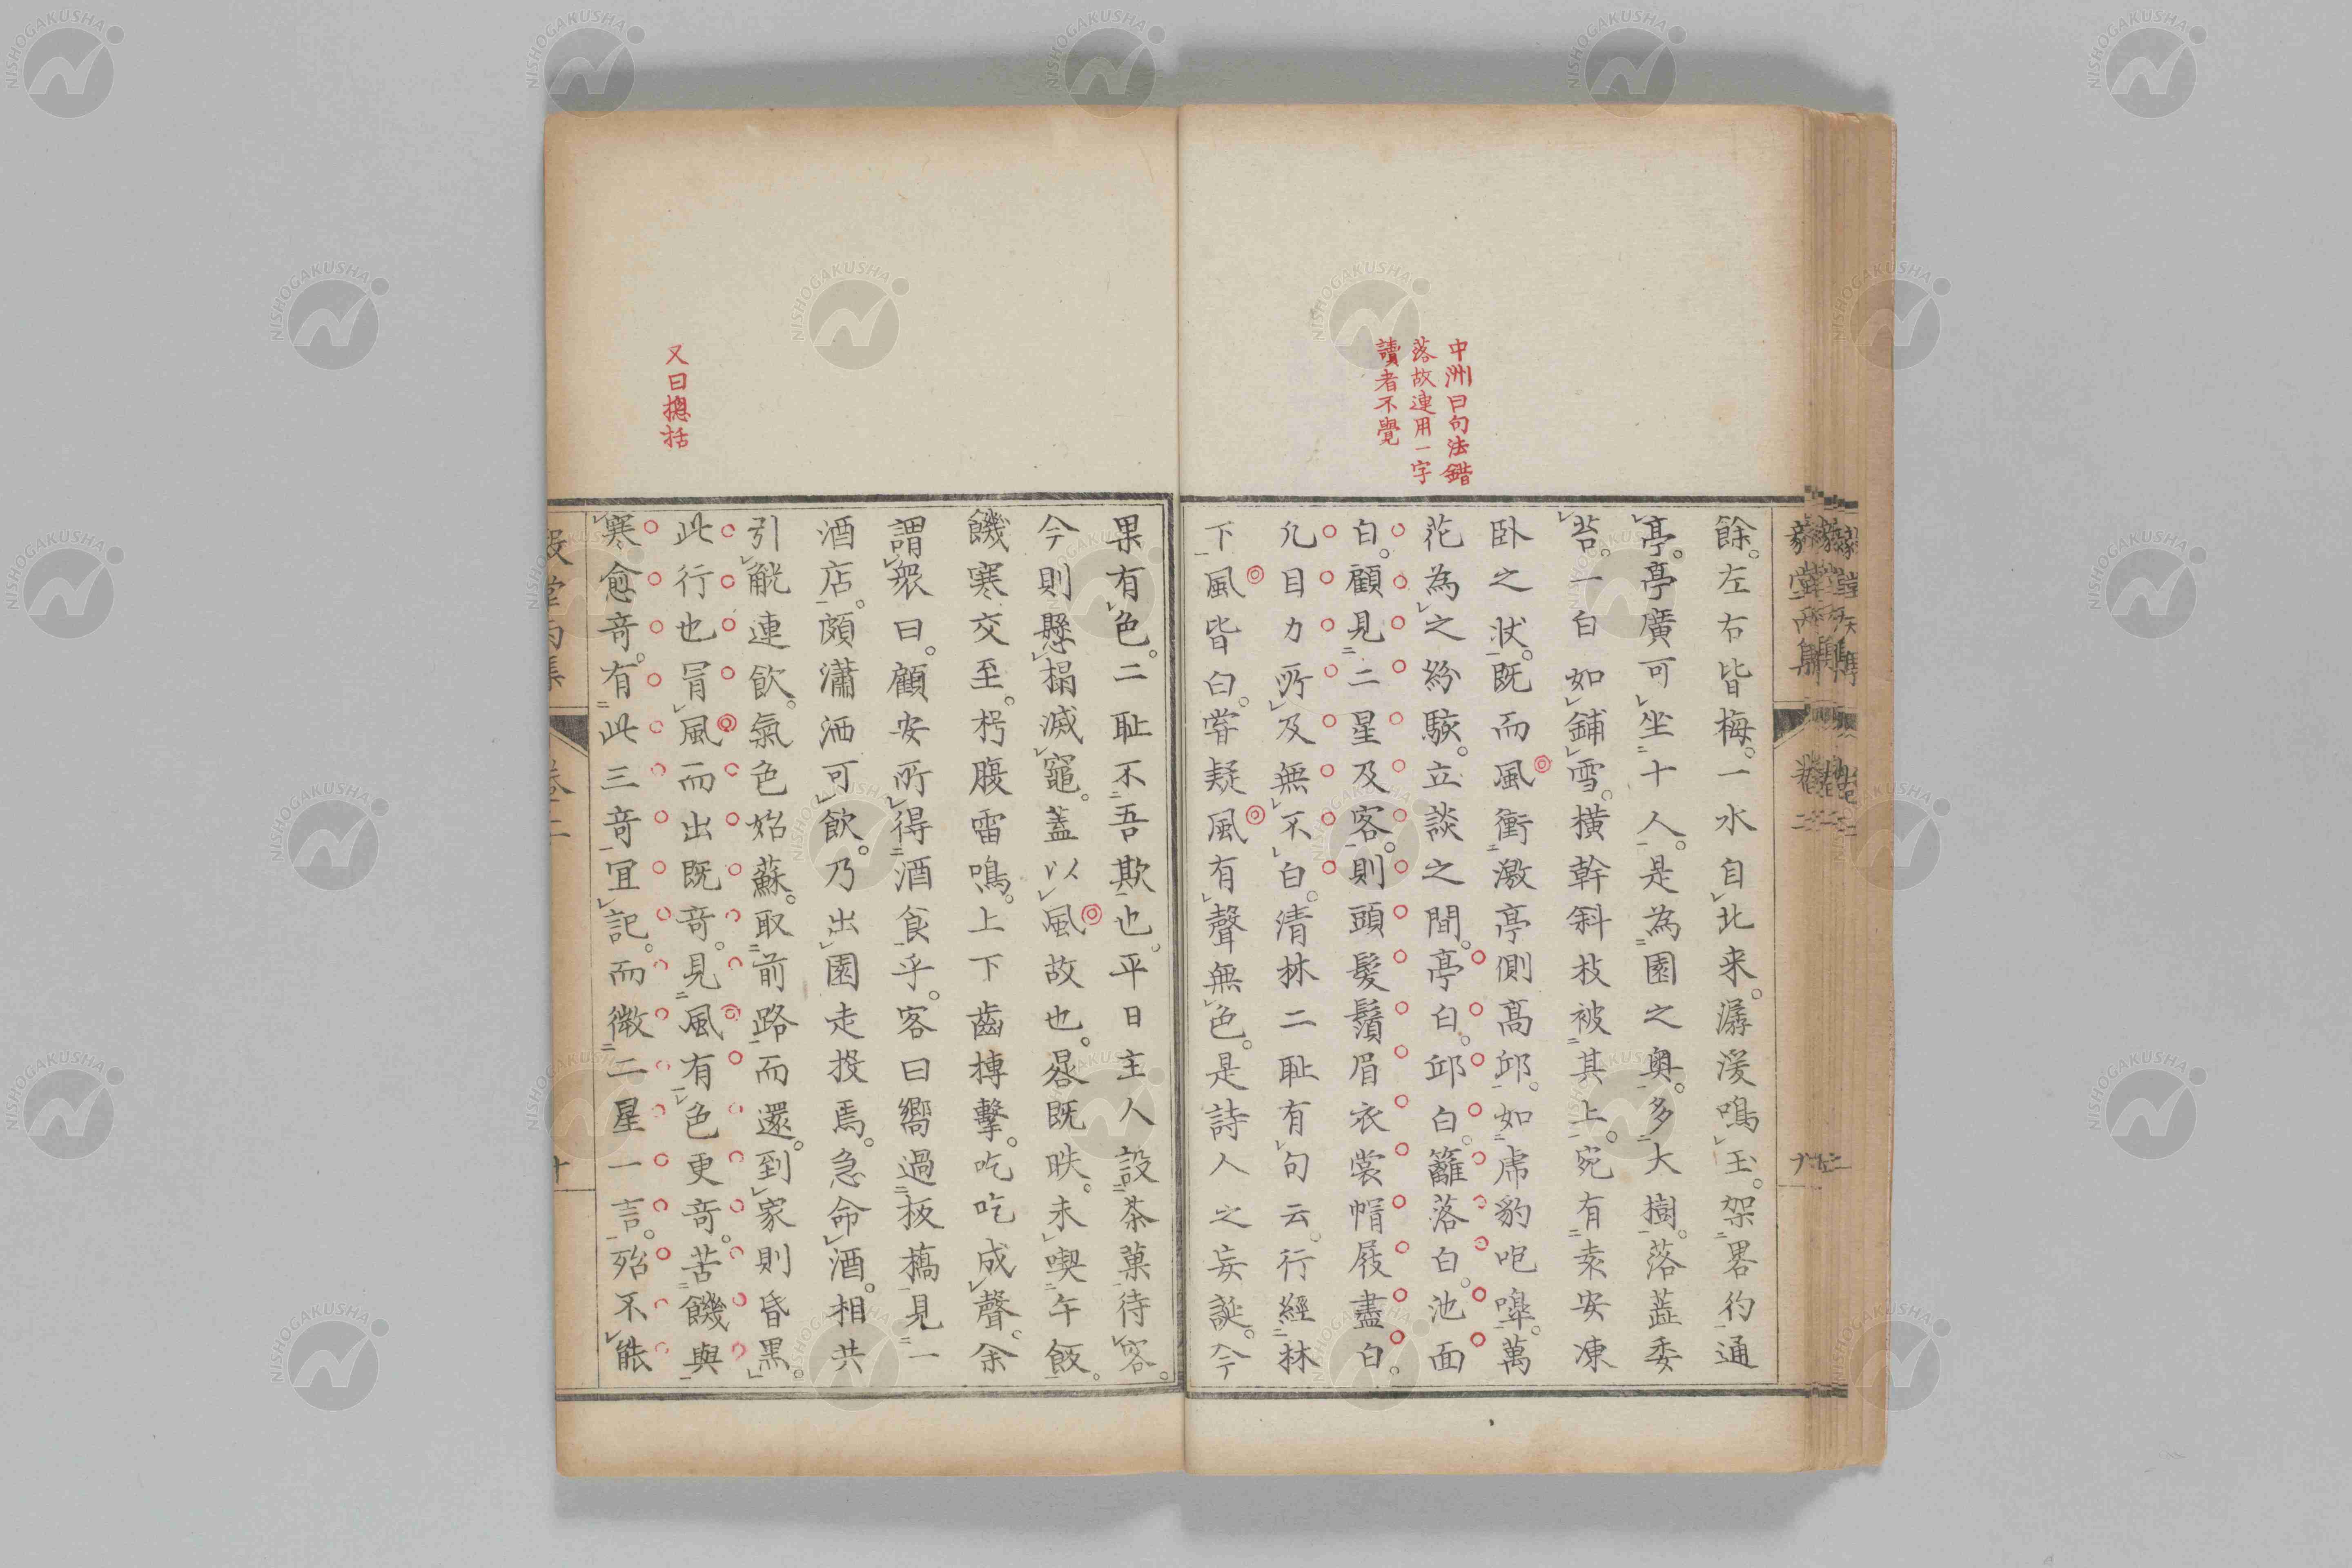 中洲曰句法錯
落故連用一字
讀者不覺
餘。左右皆梅。一水自北来。潺湲鳴玉。架畧彴通
亭。亭廣可坐十人。是為園之奧。多大樹。落蘂委
苔。一白如鋪雪。橫幹斜枝被其上。宛有袁安凍
卧之状。既而風衝激亭側高邱。如虎豹咆嘷。萬
花為之紛駭。立談之間。亭白。邱白。籬落白。池面
白。顧見二星及客。則頭髮鬚眉衣裳帽屐盡白。
凢目力所及無不白。清林二耻有句云。行經林
下風皆白。嘗疑風有聲無色。是詩人之妄誕。今
又曰摠括
果有色。二耻不吾欺也。平日主人設茶菓待客。
今則懸榻滅竈。蓋以風故也。晷既昳。未喫午飯。
饑寒交至。枵腹雷鳴。上下齒搏擊。吃吃成聲。余
謂衆曰。顧安所得酒食乎。客曰嚮過板橋見一
酒店。頗瀟洒可飲。乃出園走投焉。急命酒。相共
引觥連飲。氣色始蘇。取前路而還。到家則昏黑。
此行也冐風而出既竒。見風有色更竒。苦饑與
寒愈竒。有此三竒宜記。而微二星一言。殆不能